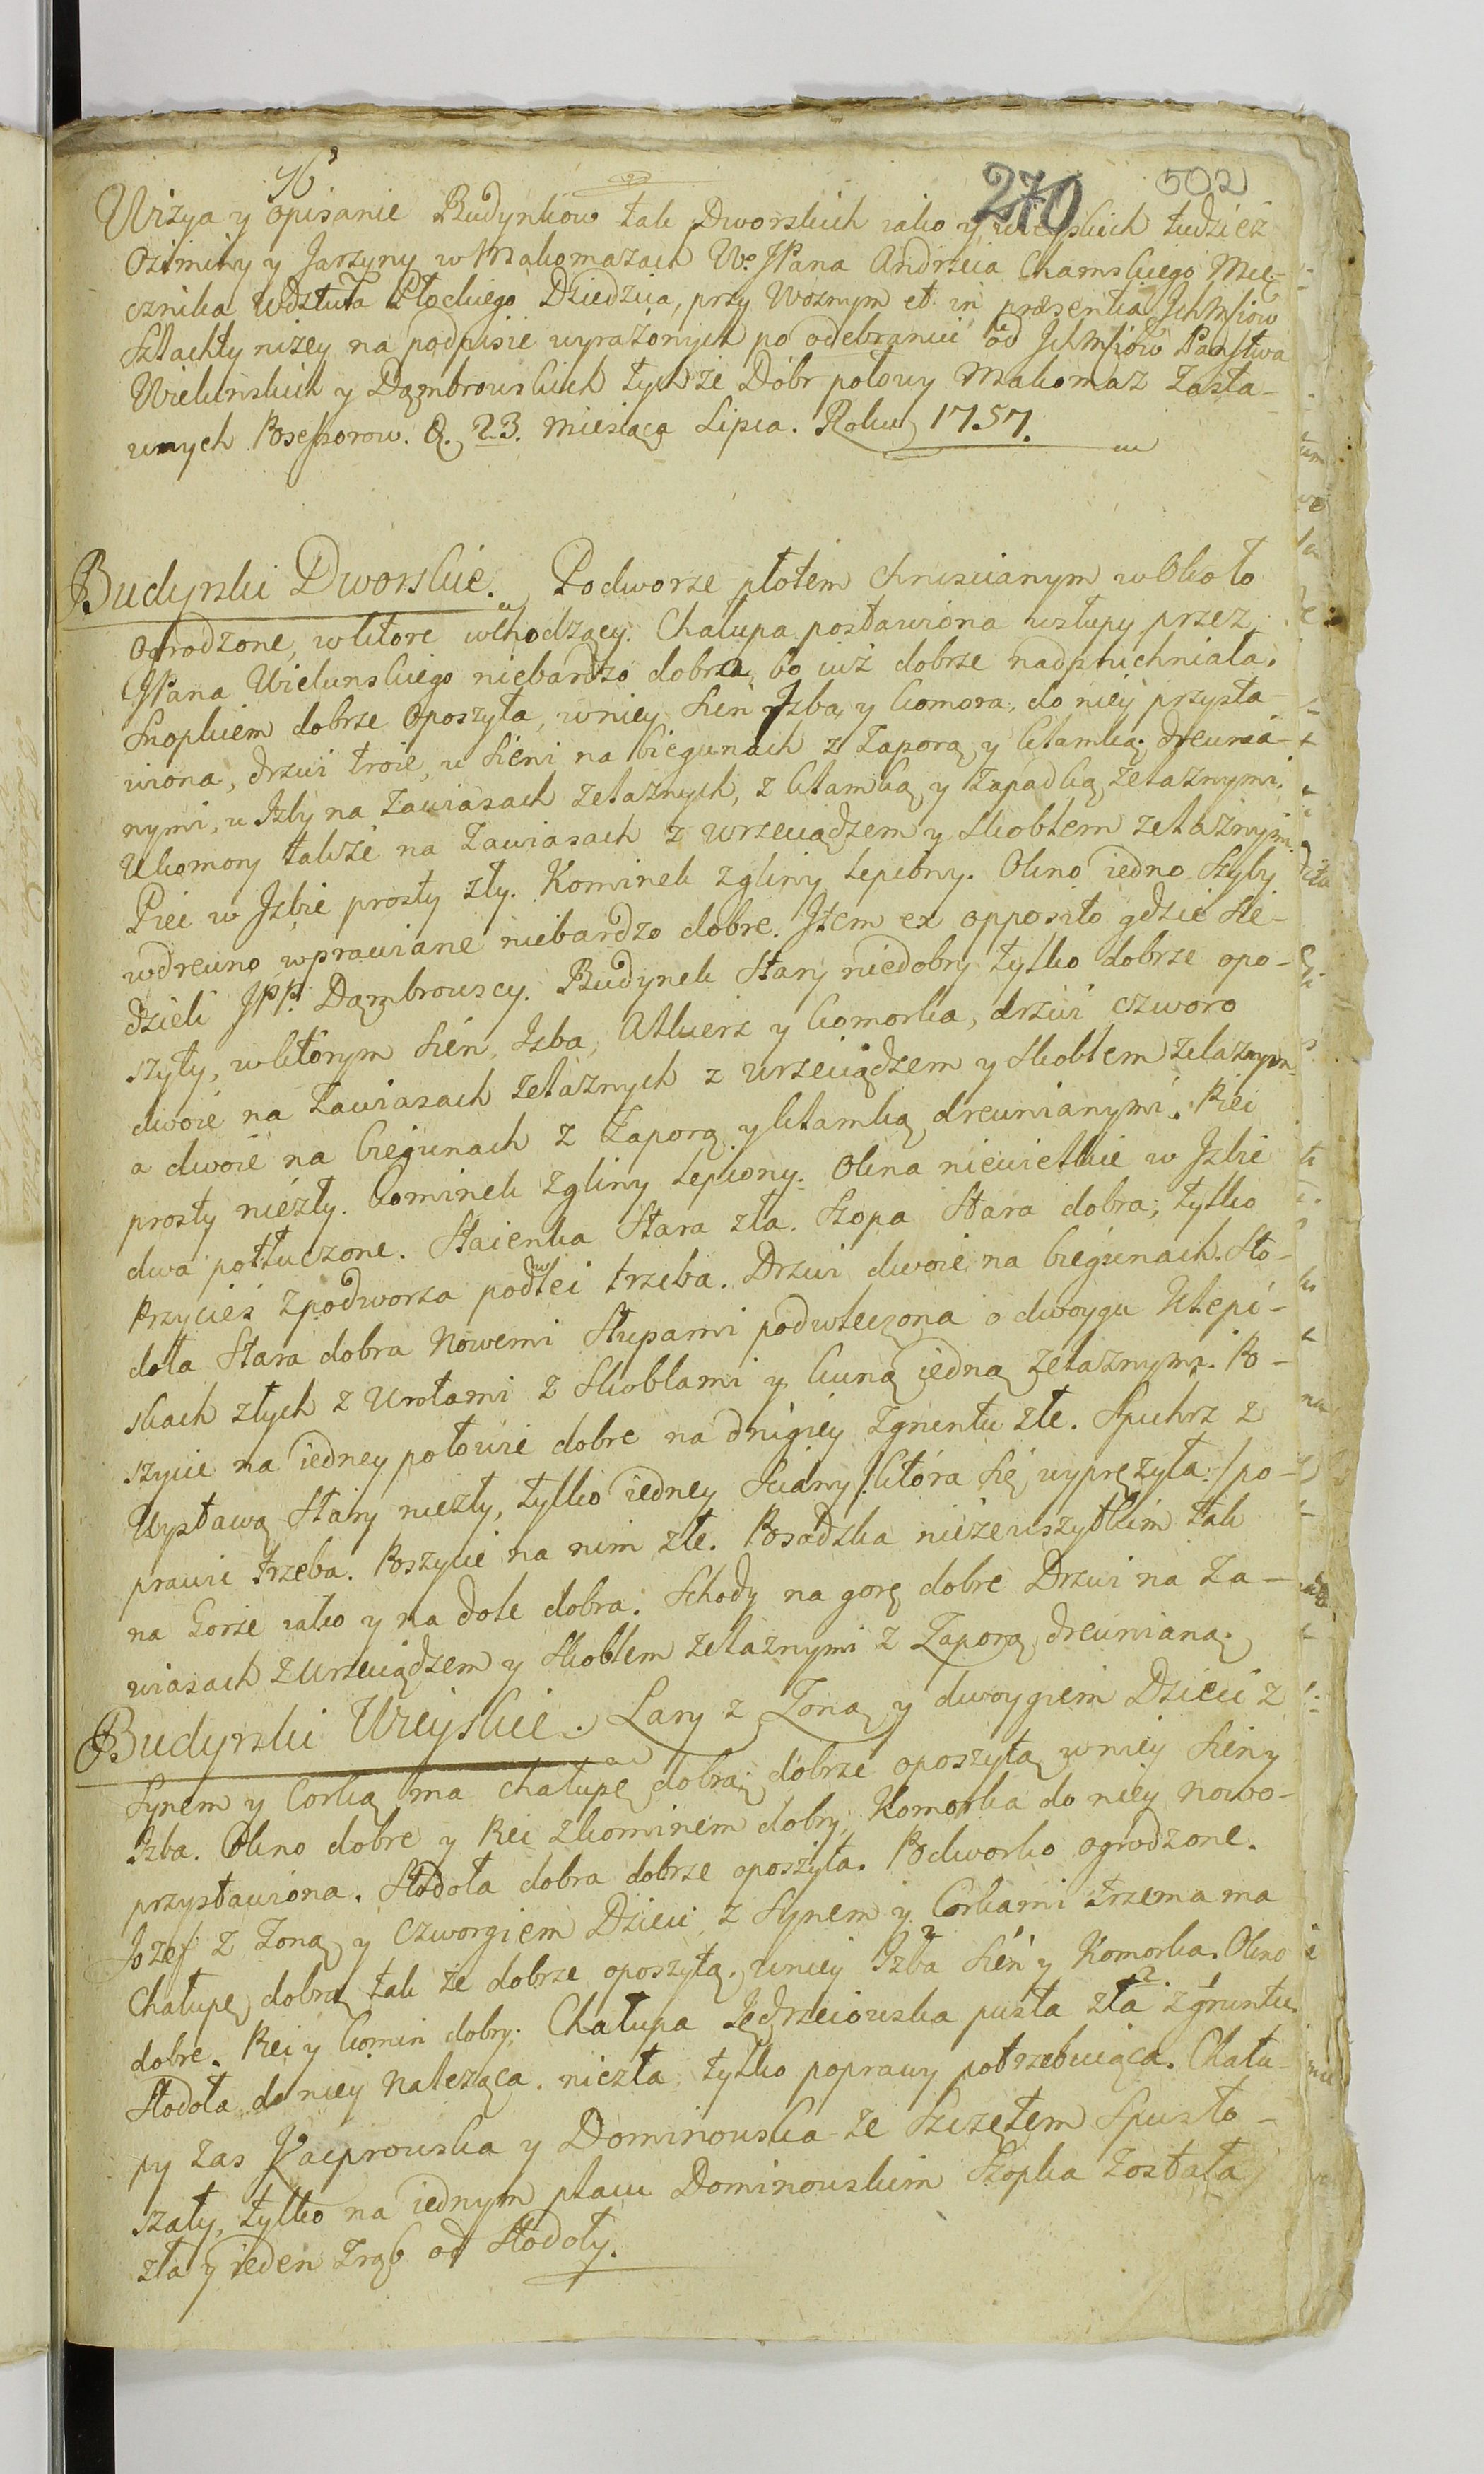 270 502
Wizya y opisanie Budynkow tak Dworskich iako y wieyskich tudziez
Oziminy y Jarzyny w Makomazach We. JPana Andrzeia Chamskiego Mie-
cznika Wdztwa Płockiego Dziedzica, przy Woznym et in præsentia IchMsciow
Szlachty nizey na podpisie wyrażonych po odebraniu od IchMsciow Państwa
Wielunskich y Dąmbrowskich tychże Dóbr połowy Makomaz Zasta-
wnych Possessorow. D. 23. Miesiąca Lipca. Roku 1757.
Budynki Dworskie. Podworze płotem chruscianym wOkoło
Ogrodzone, wktore wchodzący. Chałupa postawiona wsłupy przez
JPana Wielunskiego niebardzo dobra, bo iuż dobrze nadpruchniała.
Snopkiem dobrze Oposzyta, wniey Sień Izba y komora, do niey przysta-
wiona, drzwi troie, u Sieni na biegunach z Zaporą y klamką drewnia-
nymi, u Izby na Zawiasach żelaznych, z klamką y Zapadką żelaznymi,
Ukomory także na Zawiasach z wrzeciądzem y skoblem żelaznymi.
Piec w Izbie prosty zły. Kominek zgliny lepiony. Okno iedno Szyby
wdrewno wprawiane niebardzo dobre. Item ex opposito gdzie Sie-
dzieli JPP. Dąmbrowscy. Budynek Stary niedobry tylko dobrze opo-
szyty, wktórym Sień, Izba, Alkierz y komorka, drzwi czworo
dwoie na Zawiasach żelaznych z wrzeciądzem y skoblem żelaznym
a dwoie na biegunach z Zaporą y klamką drewnianymi. Piec
prosty niezły. kominek zgliny lepiony. Okna niewielkie w Izbie
dwa potłuczone. Staienka Stara zła. Szopa Stara dobra, tylko
Przycieś zpodworza podwlei trzeba. Drzwi dwoie na biegunach. Sto-
doła Stara dobra Nowemi Słupami podwleczona o dwoygu Klepi-
skach złych z Wrotami z Skoblami y kuną iedną żelaznymi. Po-
szycie na iedney połowie dobre na drugiey zgruntu złe. Spichrz z
Wystawą Stary niezły, tylko iedney Sciany /: która się wyprężyła :/ po-
prawi trzeba. Poszycie na nim złe. Posadzka nieżewszytkim tak
na Gorze iako y na dole dobra. Schody na gorę dobre Drzwi na Za-
wiasach zwrzeciądzem y Skoblem żelaznymi z Zaporą drewnianą.
Budynki Wieyskie. Lary z Zoną y dwoygiem Dzieci z
Synem y Corką ma chałupę dobrą dobrze oposzytą wniey Sień y
Izba. Okno dobre y Piec zkominem dobry, Komorka do niey nowo-
przystawiona. Stodoła dobra dobrze oposzyta. Podworko ogrodzone.
Jozef z Zoną y czworgiem Dzieci z Synem y Corkami trzema ma
Chałupę dobrą tak że dobrze oposzytą, wniey Izba Sień y Komorka. Okno
dobre. Piec y komin dobry. Chałupa Jędrzeiowska pusta zła zgruntu.
Stodoła do niey Należąca niezła tylko poprawy potrzebuiąca. Chału-
py zas Kacprowska y Dominowska ze Szczętem Spusto-
szały, tylko na iednym placu Dominowskim Szopka Została
zła y ieden Zrąb od Stodoły.